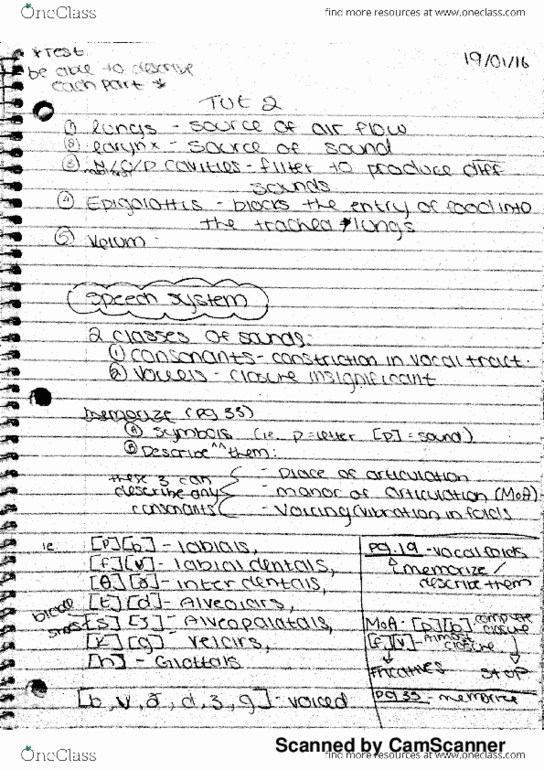 OneClass
find more resources at www.oneclass.com
*Test
be able to describe
each part *
19/01/16
TUT 2
① lungs - source of air flow
② larynx - source of sound
③ N/O/P cavities - filter to produce diff
sounds
④ Epiglottis - blocks the entry of food into
the trachea lungs
⑤ Velum -
Speech system
2 classes of sounds:
① consonants - constriction in vocal tract.
② Vowels - closure insignificant
Memorize (pg 35)
Ⓐ Symbols (ie. p = letter [p] = sound)
Ⓑ Describe ^^ them:
these 3 can
describe any
consonants
- Place of articulation
- manor of articulation (MOA)
- Voicing/vibration in folds
ie.
[p][b] - labials,
[f][v] - labial dentals,
[θ][ð] - inter dentals,
[t][d] - Alveolars,
[s][ʒ] - Alveopalatals,
[k][g] - velars,
[h] - Glottals
[b, v, ð, d, ʒ, g] - voiced
pg. 19 - vocal folds
memorize /
describe them
MOA - [p][b] complete
closure
[f][v] - Almost
closure
fricatives STOP
pg 35 - memorize
Scanned by CamScanner
OneClass
find more resources at www.oneclass.com